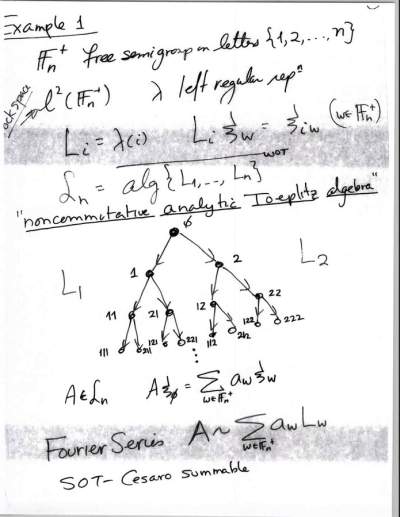 Example 1
𝔽ₙ⁺ free semigroup on letters {1,2,...,n}
ock space → ℓ²(𝔽ₙ⁺) λ left regular repⁿ
Lᵢ = λ(i) Lᵢ ξ_w = ξ_iw (w∈𝔽ₙ⁺)
𝓛ₙ = alg{L₁,...,Lₙ} WOT
"noncommutative analytic Toeplitz algebra"
ϕ
L₁ 1 2 L₂
11 21 12 22
111 211 121 221 112 212 122 222
⋮
A∈𝓛ₙ Aξ_ϕ = ∑_{w∈𝔽ₙ⁺} a_w ξ_w
Fourier Series A ~ ∑_{w∈𝔽ₙ⁺} a_w L_w
SOT - Cesaro summable